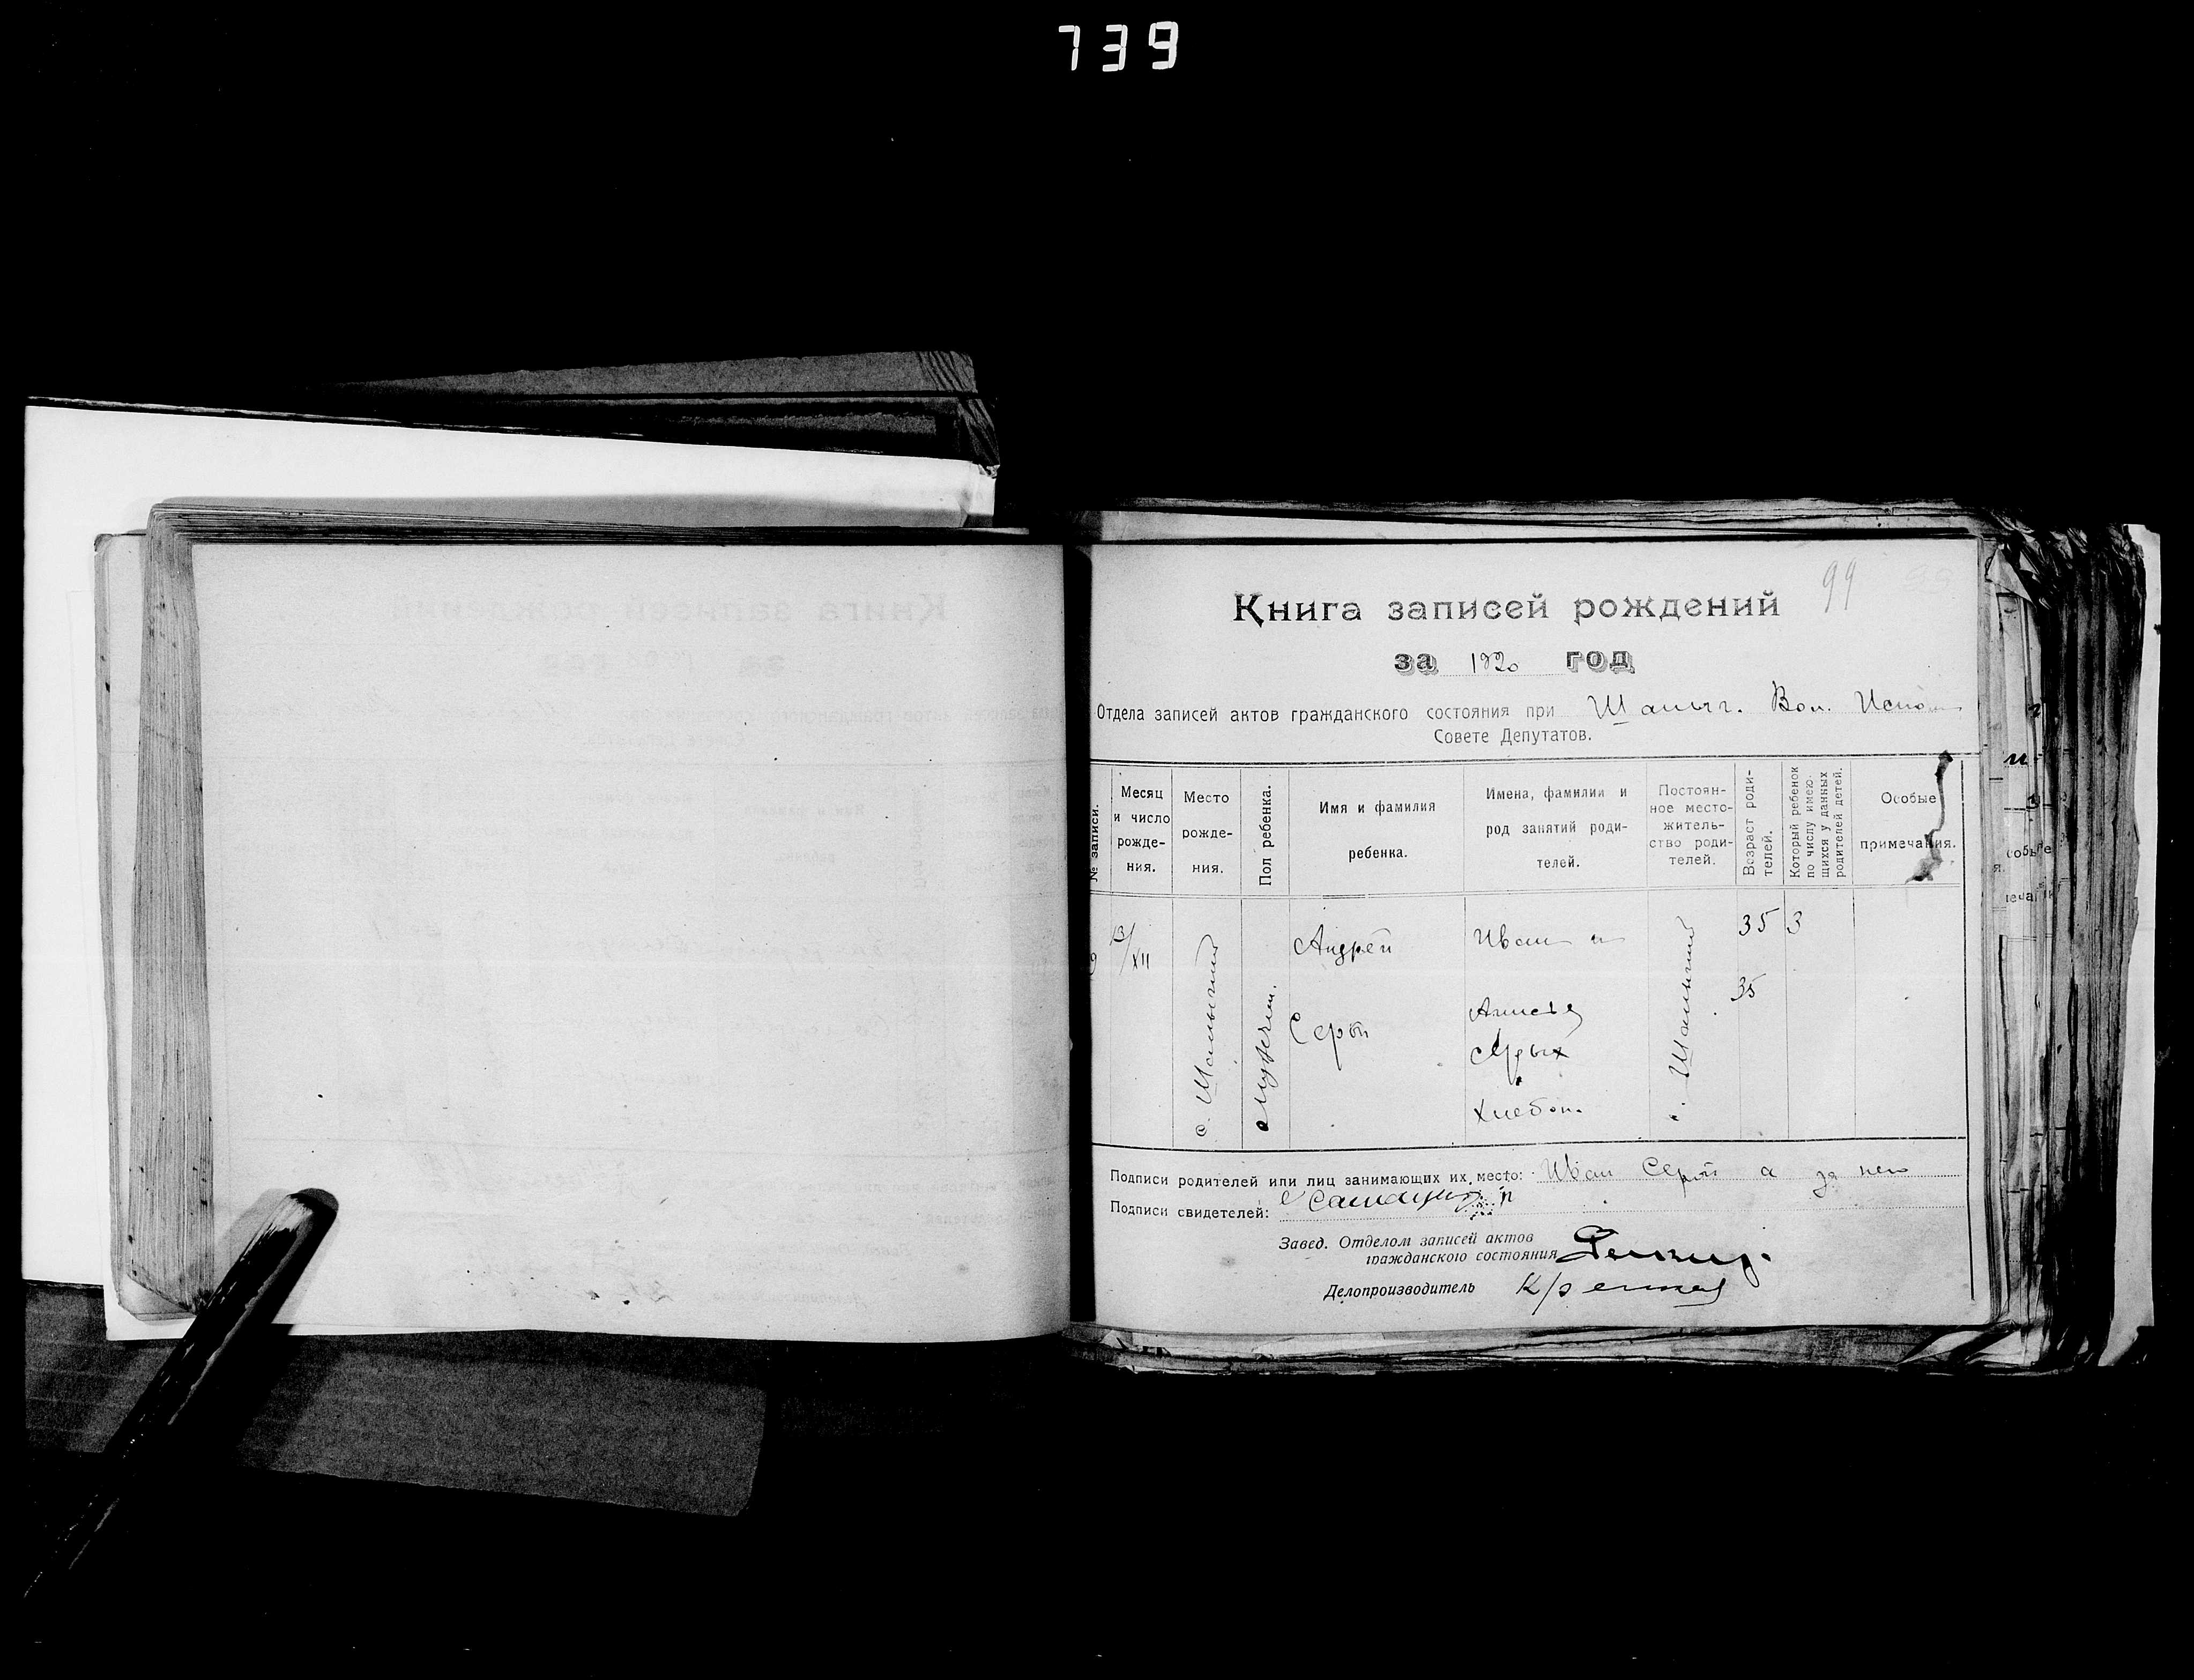 739
99
Книга записей рождений
за 1920 год
Отдела записей актов гражданского состояния при Шалыг. Вол. Испол
Совете Депутатов.
№ записи.
Месяц и число рожде-ния.
Место рожде-ния.
Пол ребенка.
Имя и фамилия ребенка.
Имена, фамилии и род занятий роди-телей.
Постоян-ное место-житель-ство роди-телей.
Возраст роди-телей.
Который ребенок по числу имею-щихся у данных родителей детей.
Особые примечания.
13/XII
с. Шалыгино
Мужчин.
Андрей
Серый
Иван и
Серых
Хлебоп.
с. Шалыгино
35
35
3
Подписи родителей или лиц занимающих их место: Иван Серый а за него
Подписи свидетелей:
Завед. Отделом записей актов
гражданского состояния
Делопроизводитель